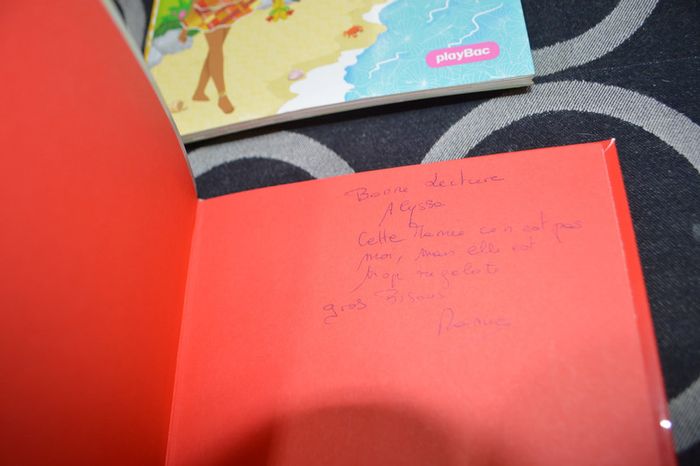 playBac
Bonne Lecture
Alyssa
Cette Mamie ce n'est pas
moi, mais elle est
trop rigolote
gros Bisous
Mamie